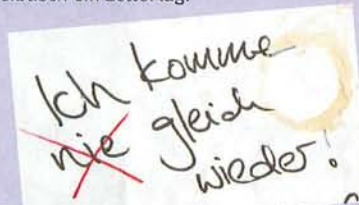 Ich komme
nie gleich
wieder!